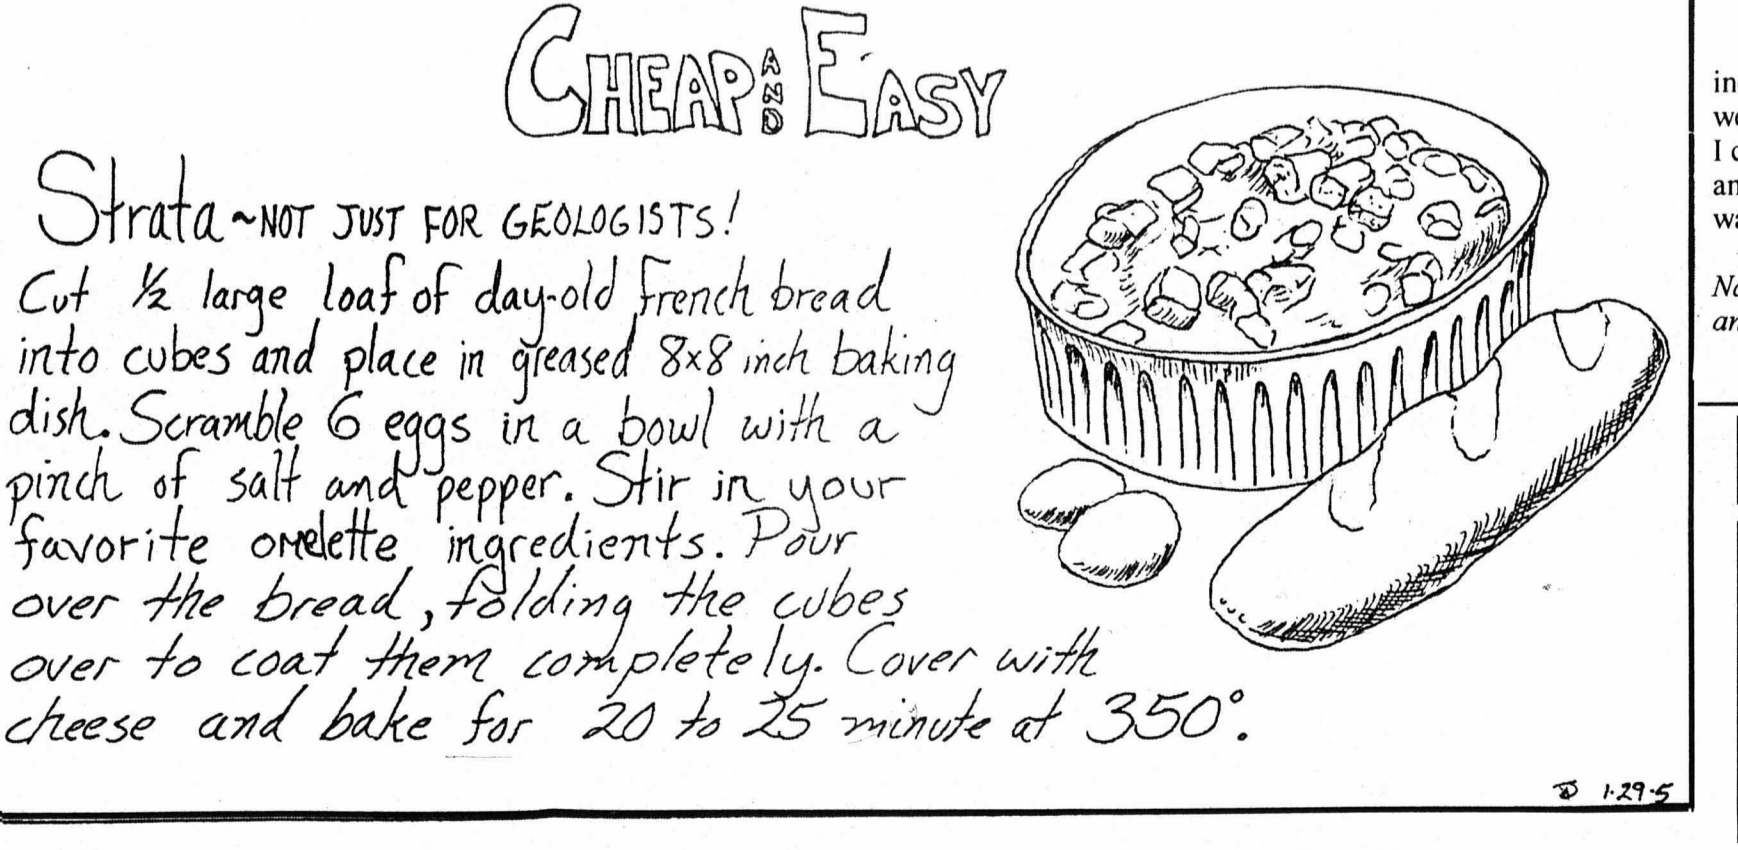 CHEAP AND EASY
Strata ~ NOT JUST FOR GEOLOGISTS!
Cut 1/2 large loaf of day-old french bread
into cubes and place in greased 8x8 inch baking
dish. Scramble 6 eggs in a bowl with a
pinch of salt and pepper. Stir in your
favorite omelette ingredients. Pour
over the bread, folding the cubes
over to coat them completely. Cover with
cheese and bake for 20 to 25 minute at 350°.
1·29·5
we
I
wa